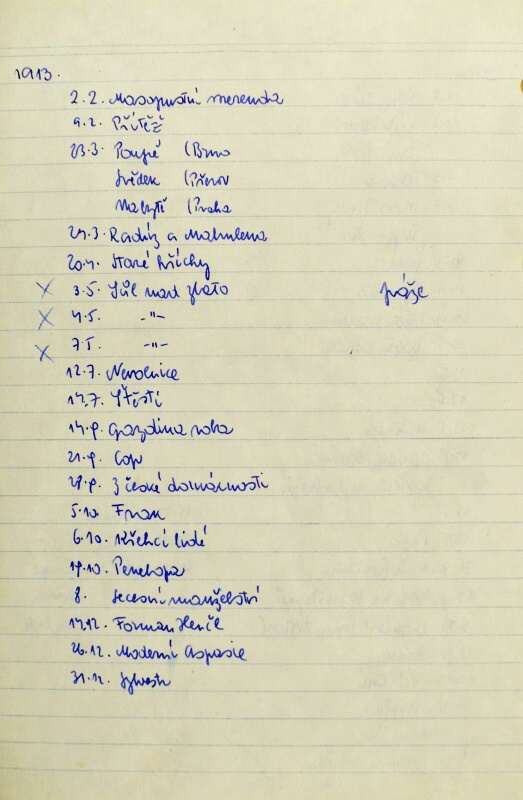 1913.
2.2. Masopustní merenda
9.2. Přítěž
23.3. Poupě (Brno
Svědek (Přerov
Nabytí (Praha
24.3. Radúz a Mahulena
20.4. Staré hříchy
x 3.5. Sůl nad zlato páže
x 4.5. -"-
x 7.5. -"-
12.7. Nevolnice
14.7. Štěstí
14.9. Gazdina roba
21.9. Cop
28.9. Z české domácnosti
5.10 Frak
6.10. Křehcí lidé
19.10. Penelopa
8. Secesní manželství
14.12. Forman Henčl
26.12. Moderní Aspasie
31.12. Sylvestr